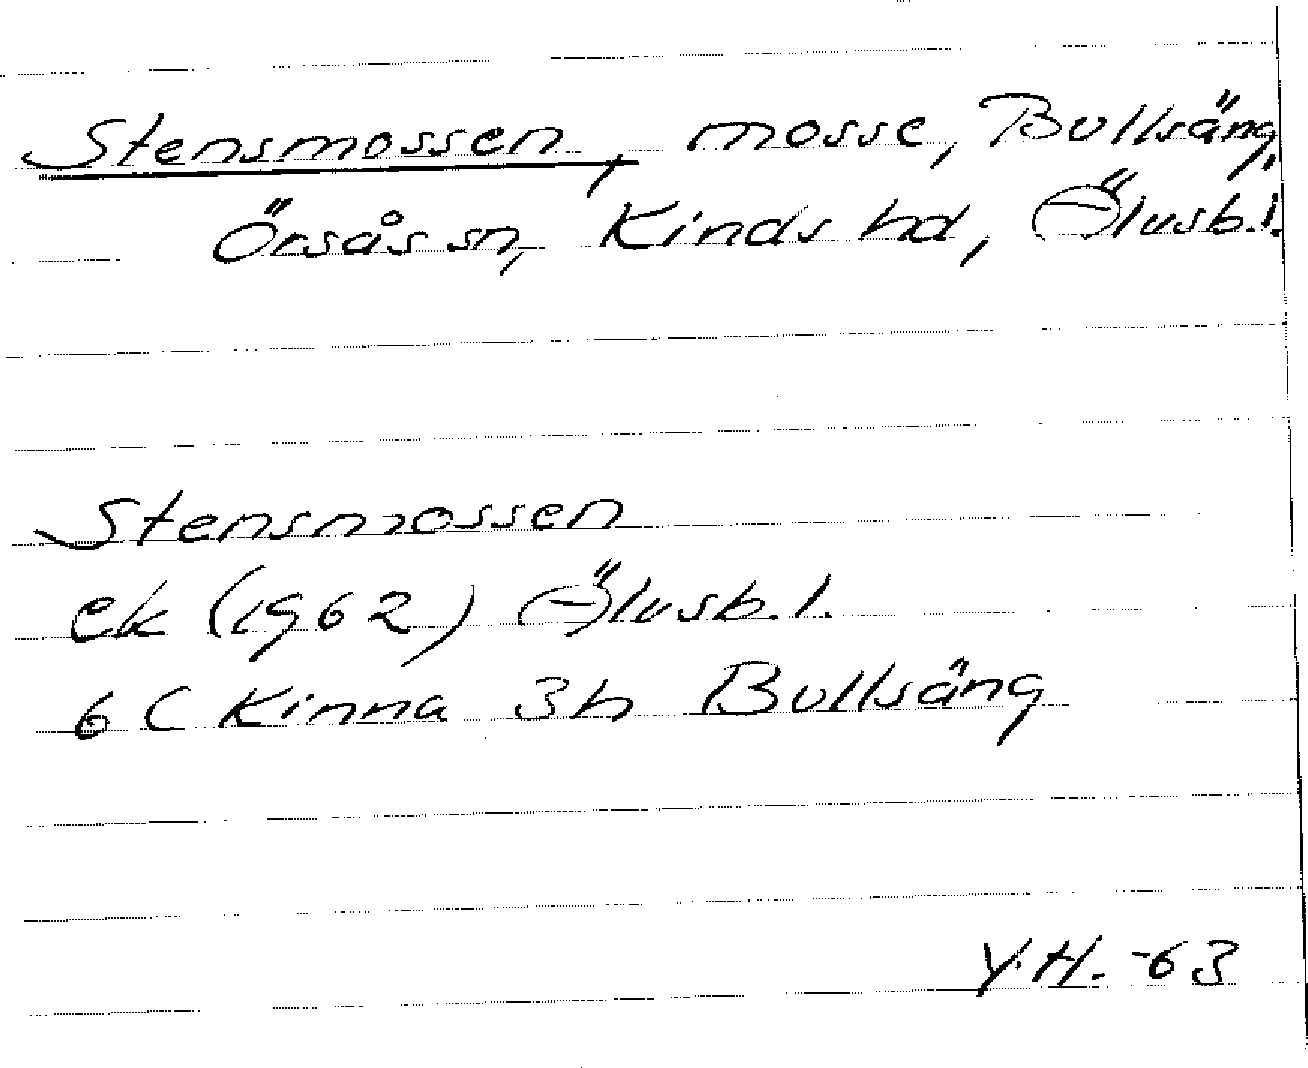 Stensmossen, mosse, Bullsäng,
Örsås sn, Kinds hd, Älvsb.l.
Stensmossen
ek (1962) Älvsb.l.
6 C Kinna 3h Bullsäng
Y.H. -63